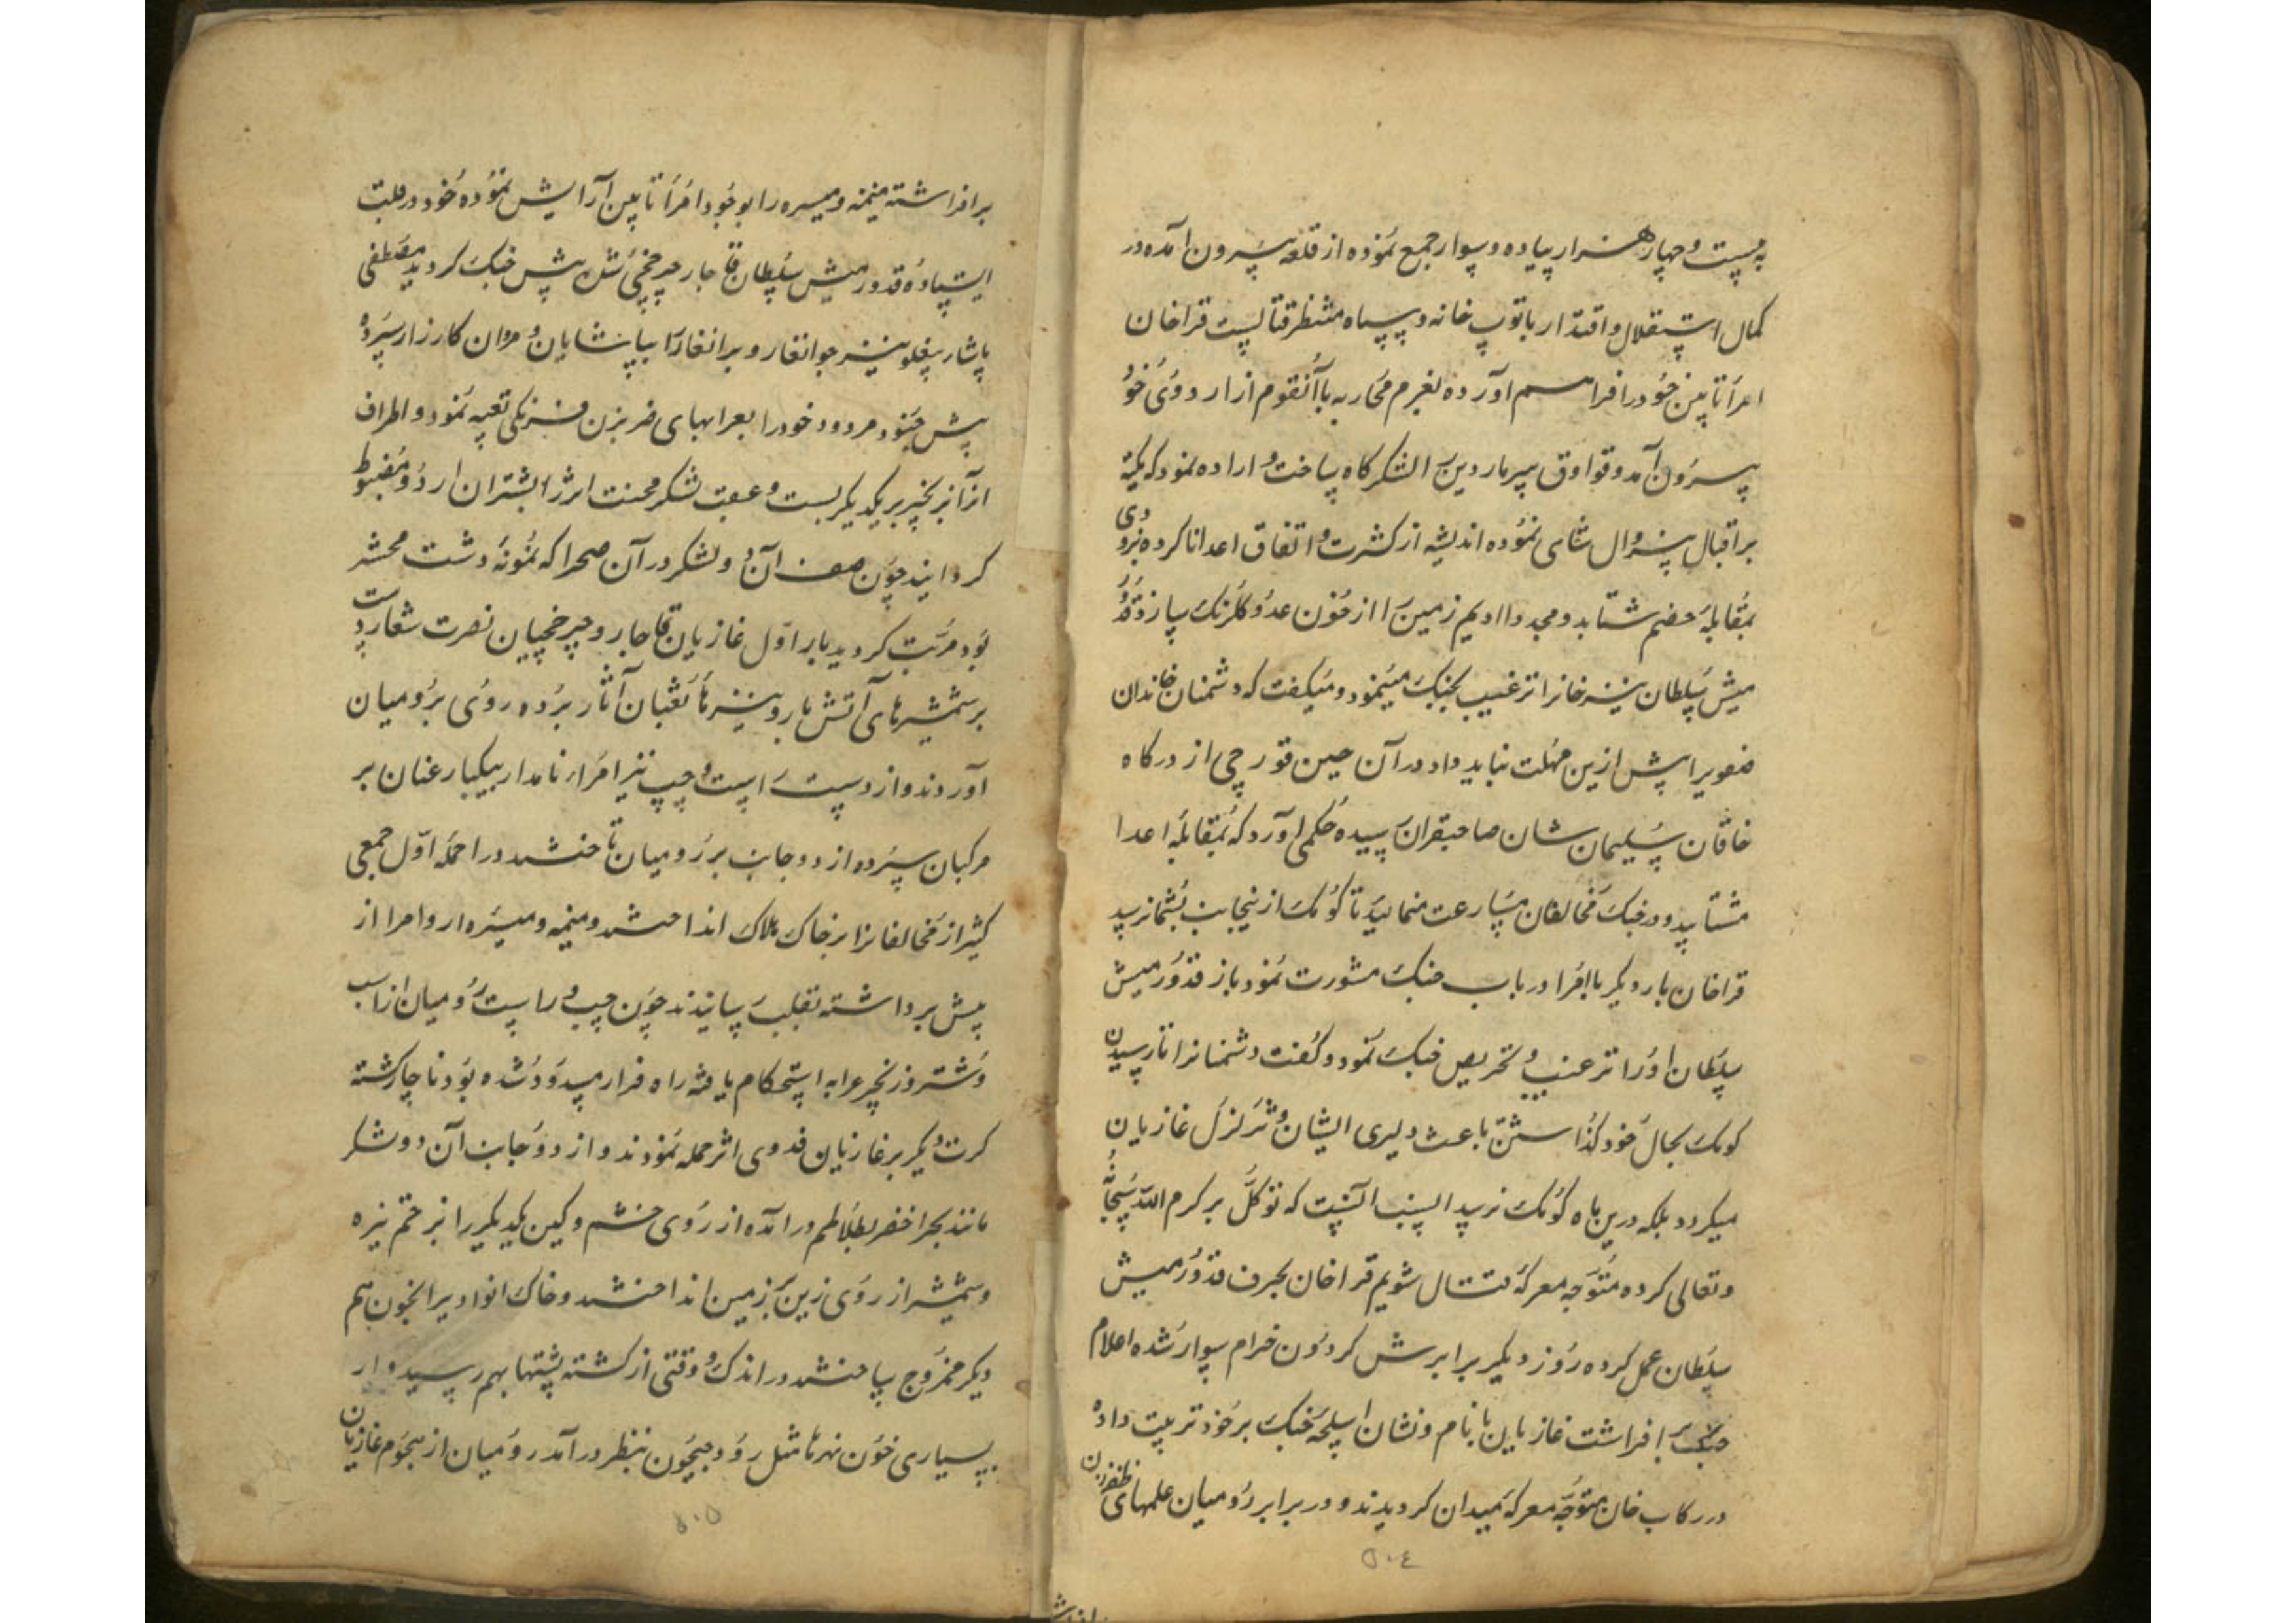 به بیست و چهار هزار پیاده و سوار جمع نموده از قلعه بیرون آمده در
کمال استقلال و اقتدار با توپ خانه و سپاه منتظر قتالست قراخان
امرا تابین خود را فراهم آورده لغرم محاربه با آنقوم از اردوی خود
بیرون آمد و قوا اوق سیر ماردین را لشکرگاه ساخت و اراده نمود که تکیه
بر اقبال بیزوال شاهی نموده اندیشه از کثرت و اتفاق اعدا ناکرده بزودی
بمقابله خصم شتابد و مجددا ادیم زمین را از خون عدو گلرنگ سازد قدور
میش سلطان نیز خانرا ترغیب بجنک مینمود و میکفت که دشمنان خاندان
صفویرا پیش ازین مهلت نباید داد در آن حین قورچی از درکاه
خاقان سلیمان شان صاحبقران رسیده حکمی آورد که بمقابله اعدا
مشتابید و در جنک مخالفان مسارعت منمائید تا کومک ازینجانب بشما نرسد
قراخان بار دیکر با امرا در باب جنک مشورت نمود باز قدور میش
سلطان او را ترغیب و تحریص جنک نمود و کفت دشمنانرا تا رسیدن
کومک بحال خود گذاشتن باعث دلیری ایشان و تزلزل غازیان
میکردد بلکه درین ماه کومک نرسد انسب آنست که توکل بر کرم الله سبحانه
و تعالی کرده متوجه معرکه قتال شویم قراخان بحرف قدور میش
سلطان عمل کرده روز دیکر برابرش کردون خرام سوار شده اعلام
جنک بر افراشت غازیان با نام و نشان اسلحه جنک بر خود ترتیب داده
در رکاب خان متوجه معرکه میدان کردیدند و در برابر رومیان علمهای ظفر
۵۰٤
برافراشته میمنه و میسره را بوجود امرا تابین آرایش نموده خود در قلب
ایستاده قدور میش سلطان قاجار چرخچی شل پیش جنک کردید مصطفی
پاشا بیقلو نیز جوانغار و برانغار را بپاشایان و مردان کارزار سپرده
پیش جنود مردود خود را بعرابهای ضربزن فرنکی تعبیه نمود و اطراف
آنرا بزنجیر بر یکدیکر بست و عقب لشکر محنت اثر را بشتران اردو مضبوط
کردانید چون صف آن دو لشکر در آن صحرا که نمونه دشت محشر
بود مرتب کردید بار اول غازیان قاجار و چرخچیان نصرت شعار دست
بر شمشیرهای آتش بار و نیزه‌های ثعبان آثار برده روی برومیان
آوردند و از دست راست و چپ نیز امراء نامدار بیکبار عنان بر
مرکبان سپرده از دو جانب بر رومیان تاختند در حمله اول جمعی
کثیر از مخالفانرا بر خاک هلاک انداختند و میمنه و میسره دار و امرا از
پیش برداشته بقلب رسانیدند چون چپ و راست رومیان از اسب
و شتر و زنجیر عرابه استحکام یافته راه فرار مسدود شده بود ناچار کشته
کرت دیکر بر غازیان فدوی اثر حمله نمودند و از دو جانب آن دو لشکر
مانند بحر اخضر بطلاطم در آمده از روی خشم و کین یکدیکر را بزخم نیزه
و شمشیر از روی زین بزمین انداختند و خاک انوادیرا بخون هم
دیکر ممزوج ساختند در اندک وقتی از کشته پشتها بهم رسید و از
بسیاری خون نهرها مثل رود جیحون بنظر در آمد رومیان از هجوم غازیان
۵۰۵